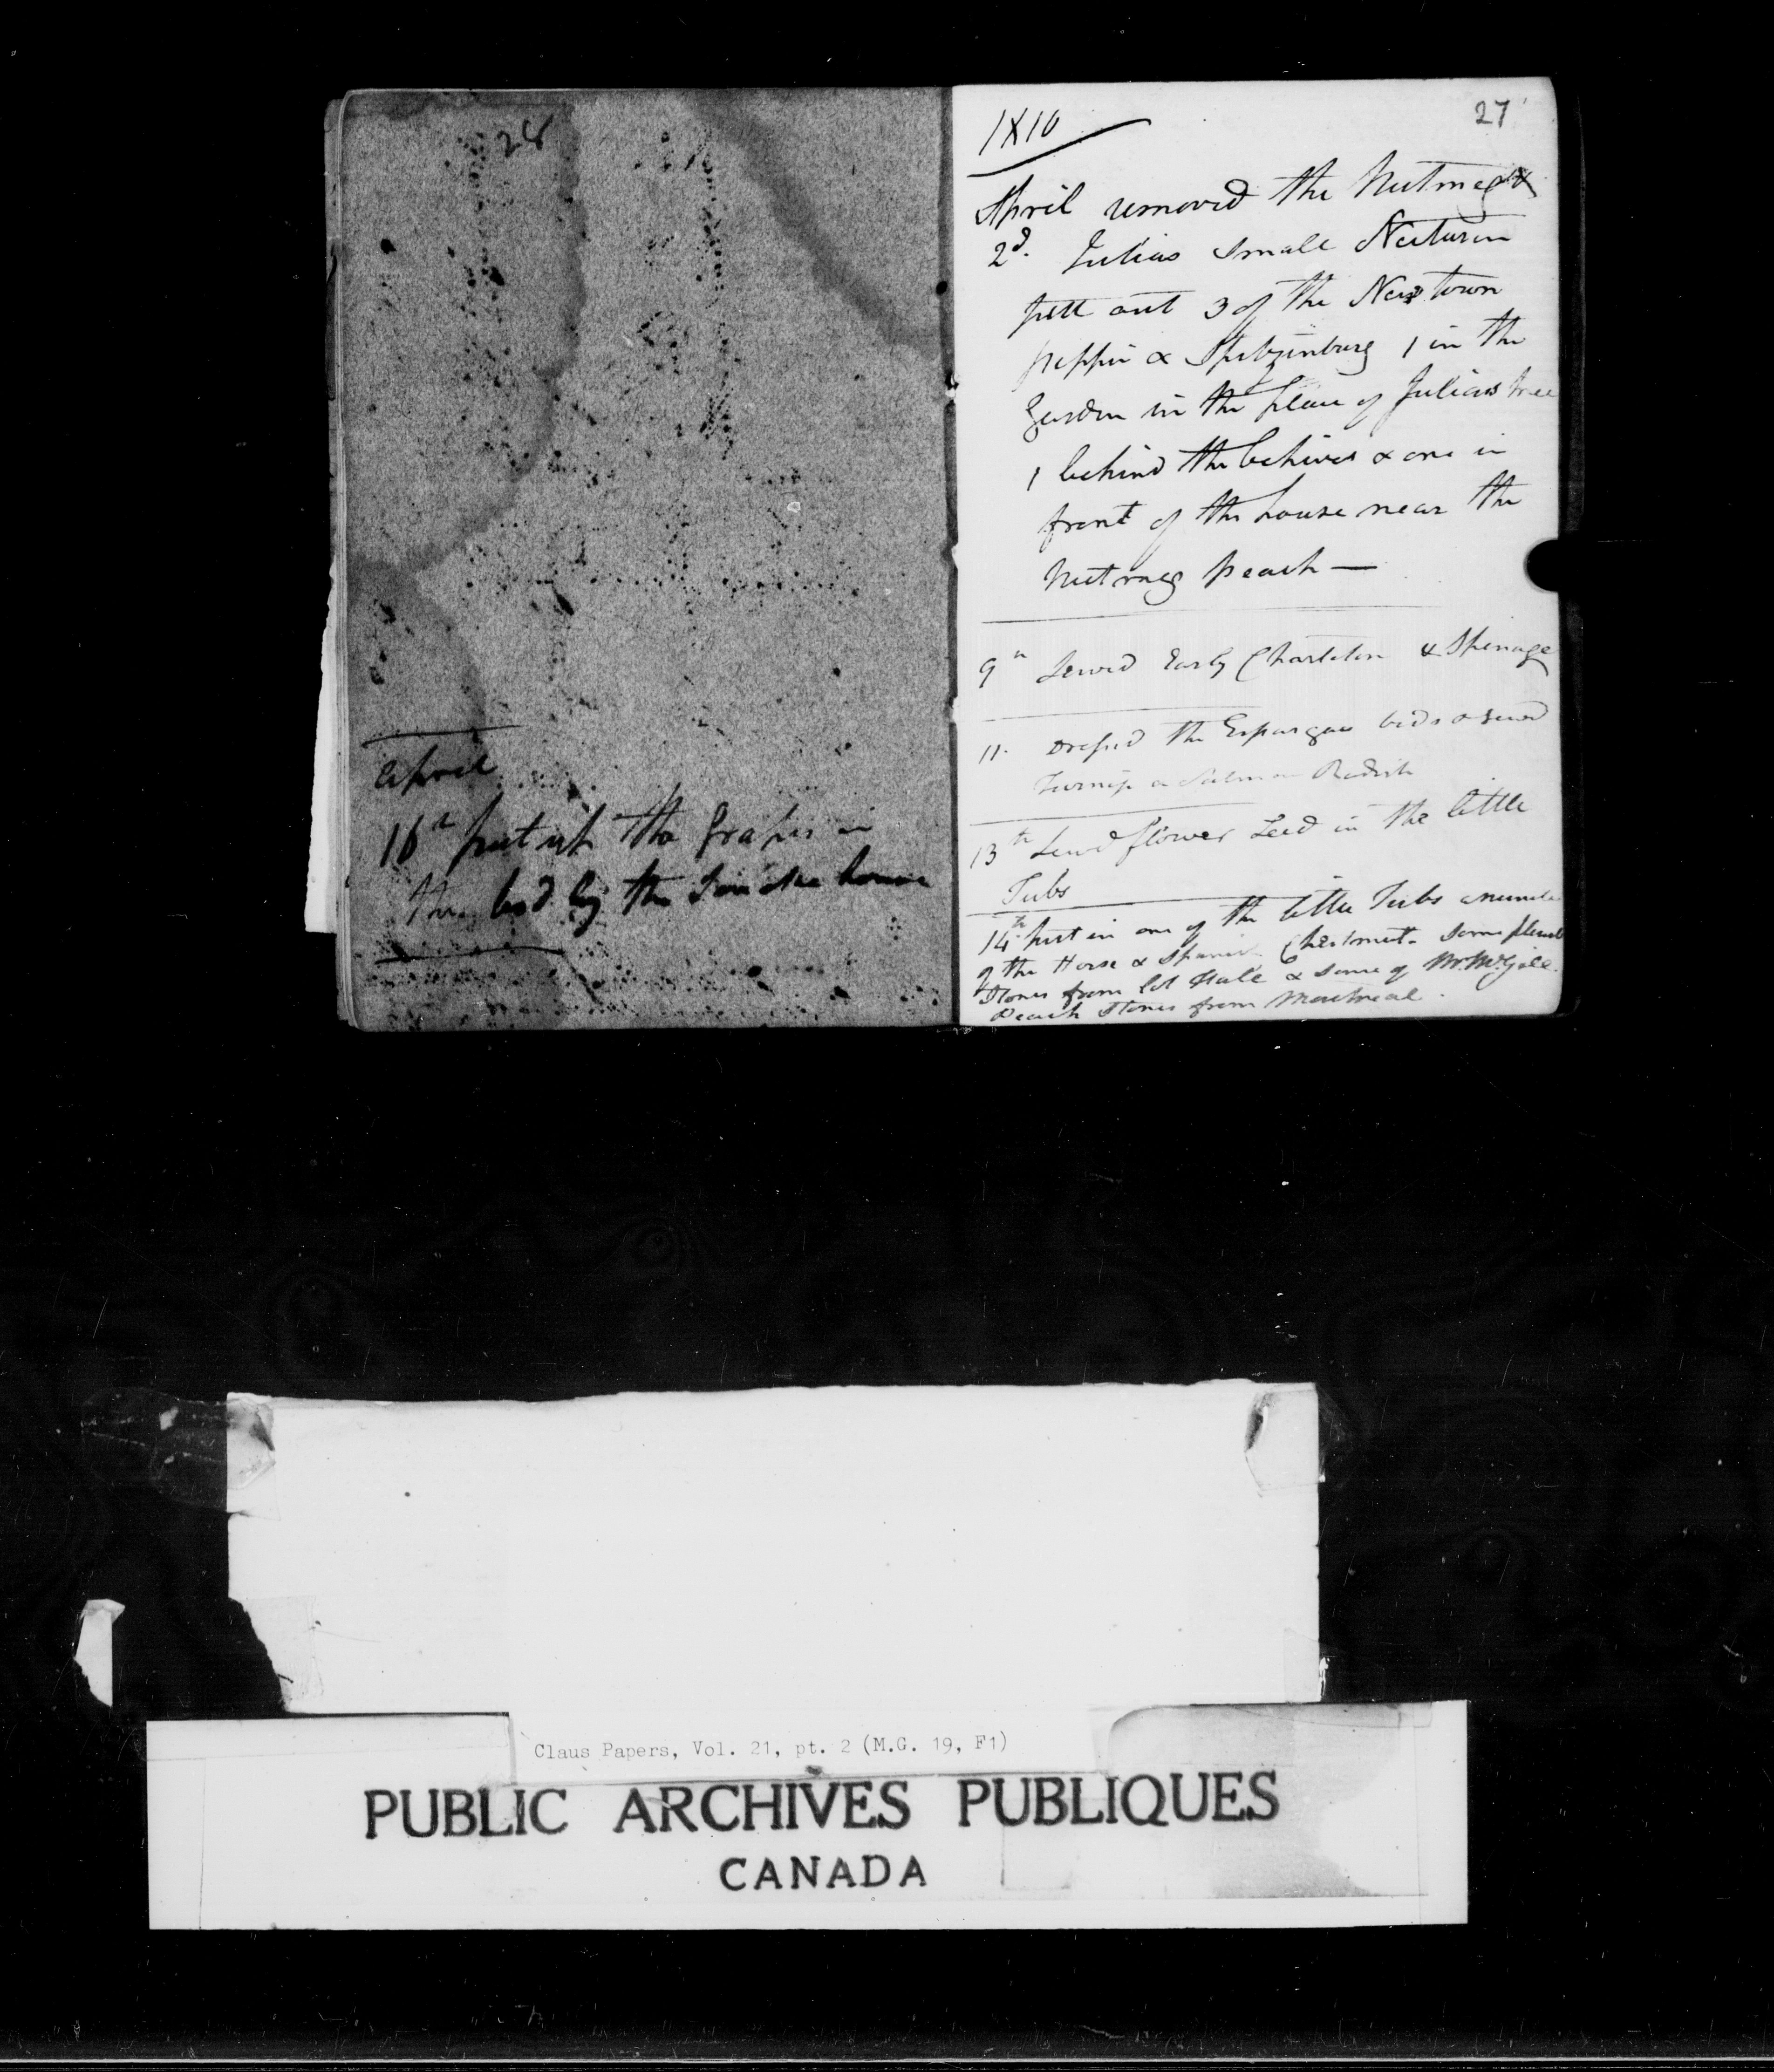 28
April
16th put up the Grapes in
the bed by the Smoke house
1810
27
April removed the Nutmeg &
2d. Julias small Necturen
putt out 3 of the New town
peppin & Spitzinburg 1 in the
Garden in the place of Julias tree
1 behind the behives & one in
front of the house near the
Nutmeg peach —
9th Sewed Early Charleton & Spinage
11. Dressed the Esparagus beds & sewed
Turnip & Salmon Radish
13th Sewd flower Seed in the little
Tubs
14th put in one of the little Tubs a number
of the Horse & Spanish Chestnut. Some plumb
Stones from Col Hale & some of Mr. McGill
Peach Stones from Montreal.
Claus Papers, Vol. 21, pt. 2 (M.G. 19, F1)
PUBLIC ARCHIVES PUBLIQUES
CANADA